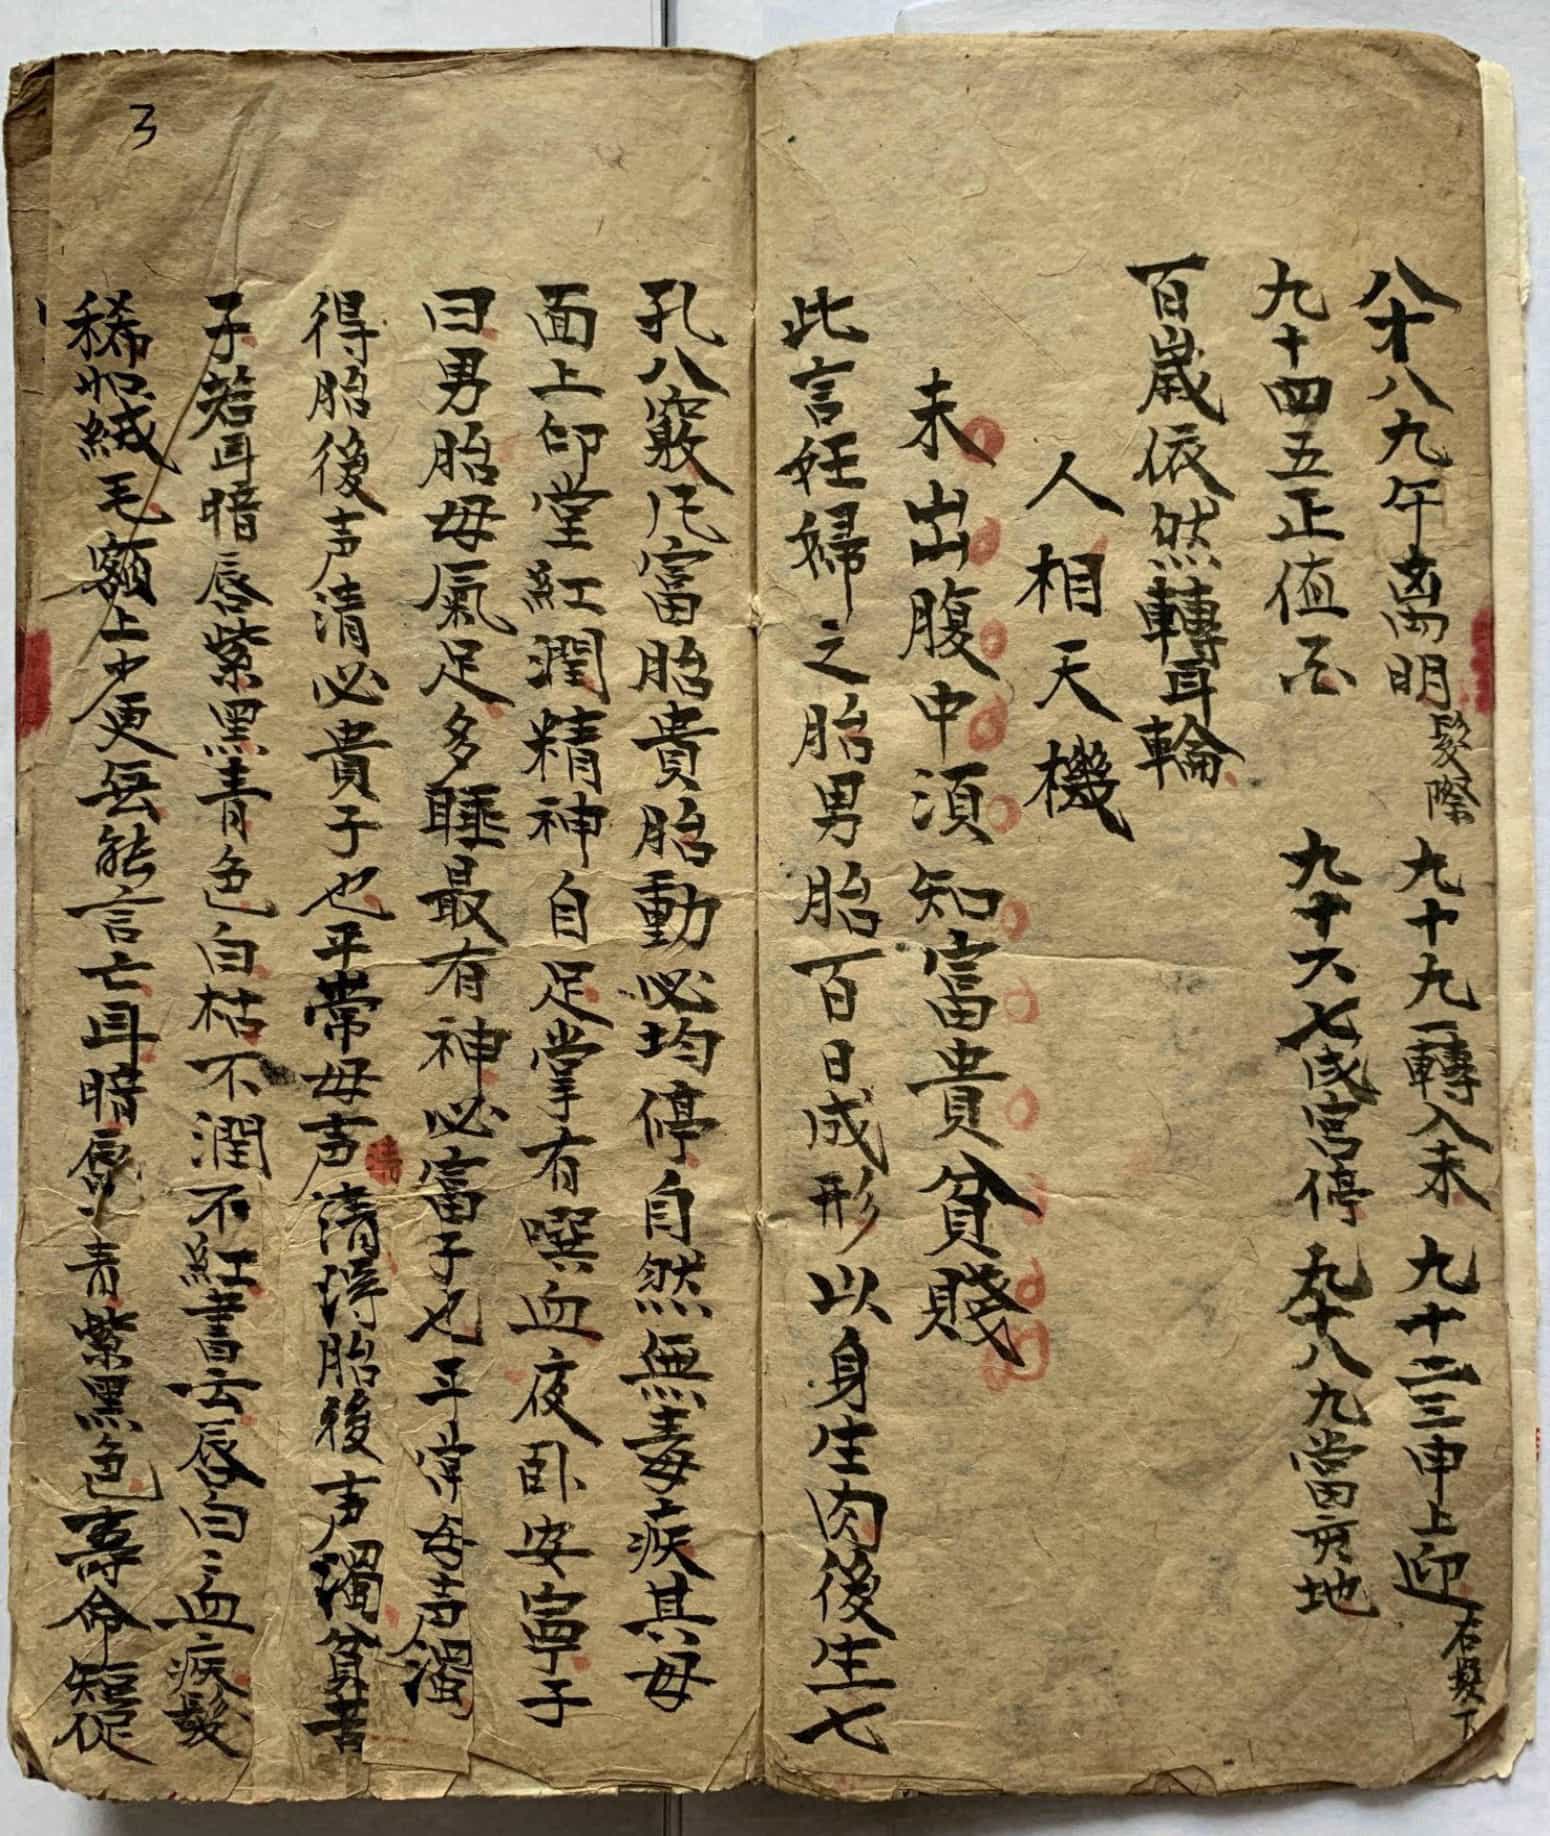 八十八九午禹明髮際 九十九一轉入未 九十二三申上迎右頦下
九十四五正值酉 九十六七戌宮停 九十八九當亥地
百歲依然轉耳輪
人相天機
未出腹中須知富貴貧賤
此言妊婦之胎男胎百日成形以身生肉後生七
孔八竅凡富胎貴胎動必均停自然無毒疾其母
面上印堂紅潤精神自足掌有噀血夜卧安寧子
曰男胎母氣足多睡最有神必富子也平常母声濁
得胎後声清必貴子也平常母声清得胎後声濁貧苦
子若耳暗唇紫黑青色白枯不潤不紅書云唇白三血疾髮
稀如絨毛額上少更無能言亡耳暗唇青紫黑色壽命短促
3